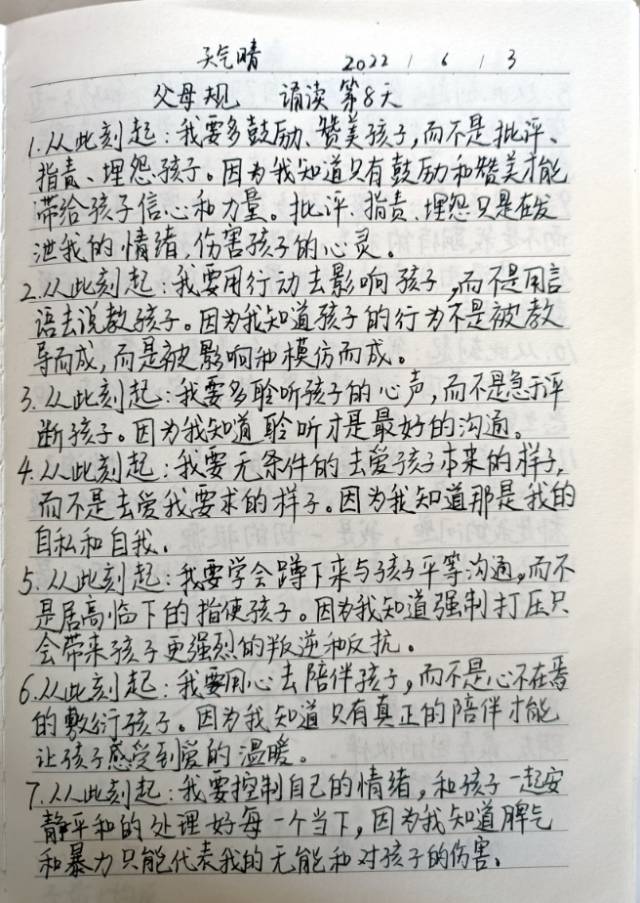 天气晴 2022 / 6 / 3
父母规 诵读 第8天
1.从此刻起:我要多鼓励、赞美孩子,而不是批评、
指责、埋怨孩子。因为我知道只有鼓励和赞美才能
带给孩子信心和力量。批评、指责、埋怨只是在发
泄我的情绪,伤害孩子的心灵。
2.从此刻起:我要用行动去影响孩子,而不是用言
语去说教孩子。因为我知道孩子的行为不是被教
导而成,而是被影响和模仿而成。
3.从此刻起:我要多聆听孩子的心声,而不是急于评
断孩子。因为我知道聆听才是最好的沟通。
4.从此刻起:我要无条件的去爱孩子本来的样子,
而不是去爱我要求的样子。因为我知道那是我的
自私和自我。
5.从此刻起:我要学会蹲下来与孩子平等沟通。而不
是居高临下的指使孩子。因为我知道强制打压只
会带来孩子更强烈的叛逆和反抗。
6.从此刻起:我要用心去陪伴孩子,而不是心不在焉
的敷衍孩子。因为我知道只有真正的陪伴才能
让孩子感受到爱的温暖。
7.从此刻起:我要控制自己的情绪,和孩子一起安
静平和的处理好每一个当下,因为我知道脾气
和暴力只能代表我的无能和对孩子的伤害。